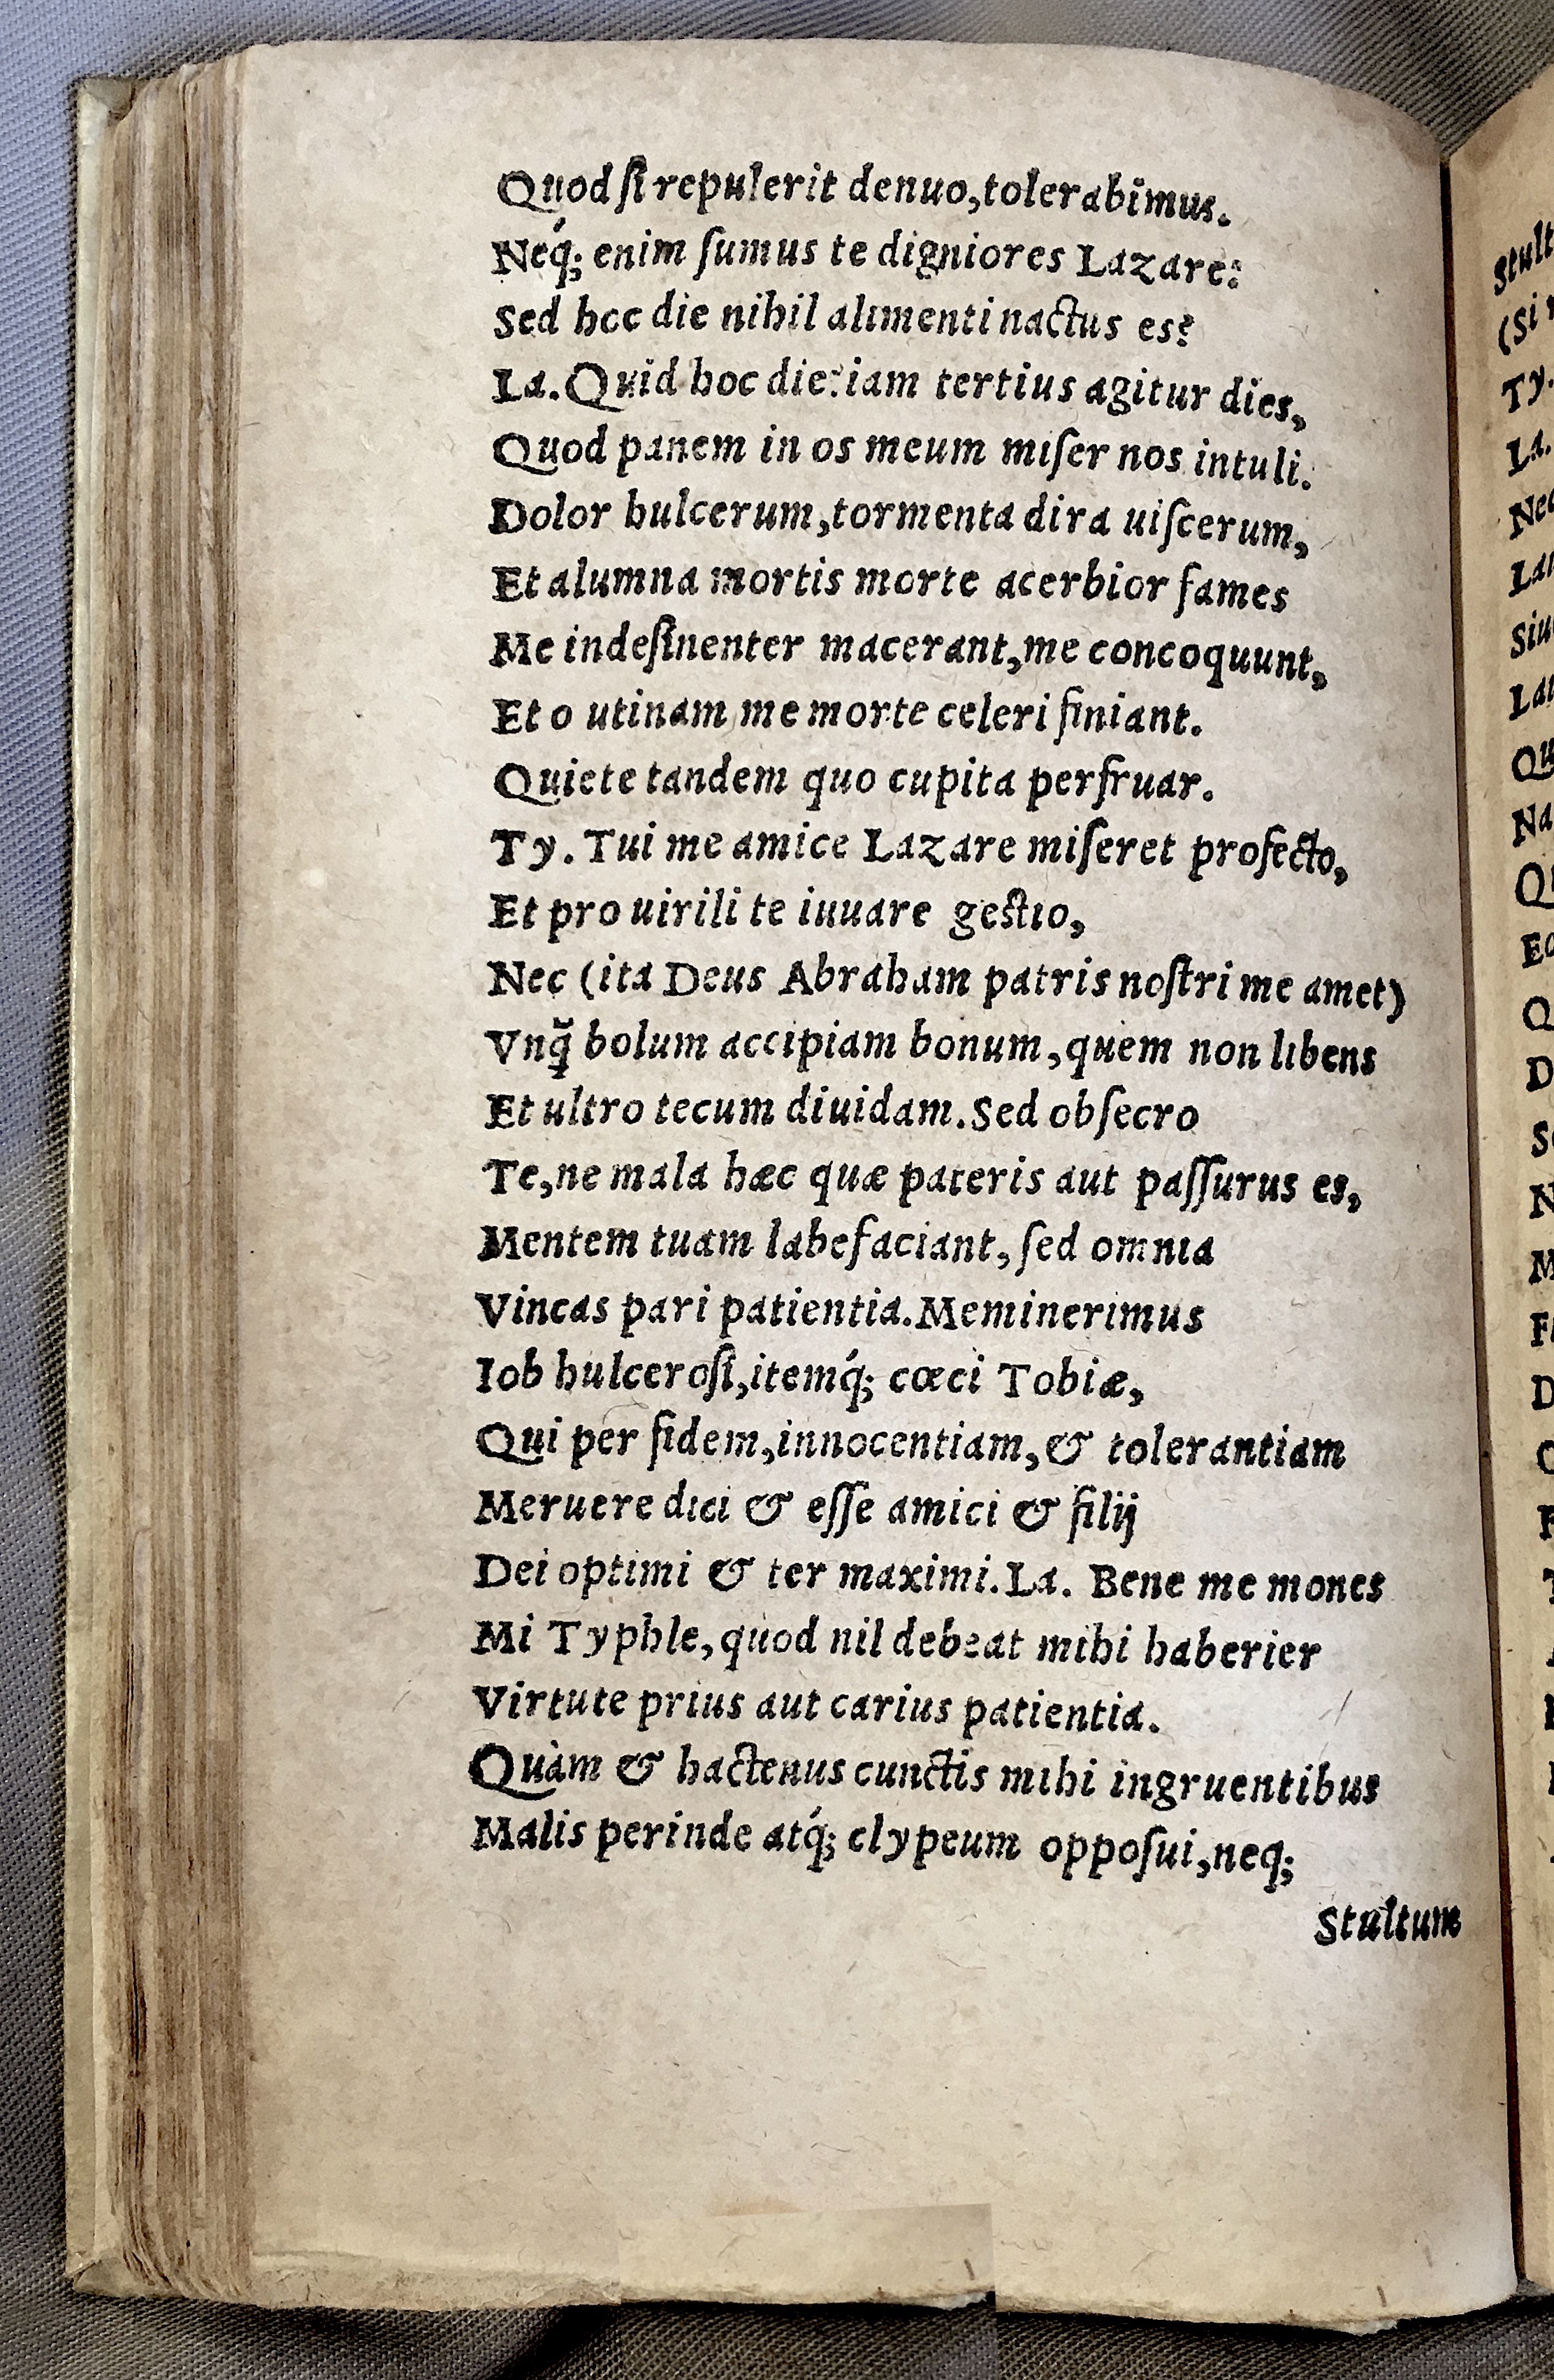 Quod ſi repulerit denuo, tolerabimus.
Neq́; enim ſumus te digniores Lazare:
Sed hoc die nihil alimenti nactus es?
La. Quid hoc die? iam tertius agitur dies,
Quod panem in os meum miſer nos intuli.
Dolor hulcerum, tormenta dira uiſcerum,
Et alumna mortis morte acerbior fames
Me indeſinenter macerant, me concoquunt,
Et o utinam me morte celeri finiant.
Quiete tandem quo cupita perfruar.
Ty. Tui me amice Lazare miſeret profecto,
Et pro uirili te iuuare gestio,
Nec (ita Deus Abraham patris noſtri me amet)
Vnq̃ bolum accipiam bonum, quem non libens
Et ultro tecum diuidam. Sed obſecro
Te, ne mala hæc quæ pateris aut paſſurus es,
Mentem tuam labefaciant, ſed omnia
Vincas pari patientia. Meminerimus
Iob hulceroſi, itemq́; cœci Tobiæ,
Qui per fidem, innocentiam, & tolerantiam
Meruere dici & eſſe amici & filij
Dei optimi & ter maximi. La. Bene me mones
Mi Typhle, quod nil debeat mihi haberier
Virtute prius aut carius patientia.
Quàm & hactenus cunctis mihi ingruentibus
Malis perinde atq́; clypeum oppoſui, neq;
Stultum